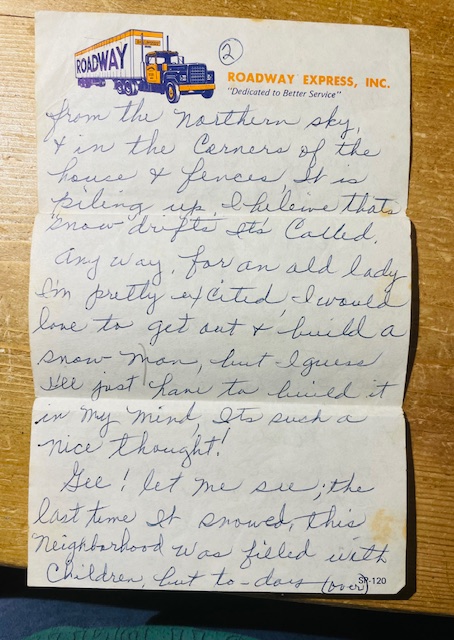 ROADWAY
2
ROADWAY EXPRESS, INC.
"Dedicated to Better Service"
from the northern sky,
& in the Corners of the
house & fences It is
piling up, I beleive thats
snow drifts Its Called.
Any way, for an old lady
I'm pretty excited, I would
love to get out & build a
snow man, but I guess
I'll just have to build it
in my mind, Its such a
nice thought!
Gee! let me see; the
last time It snowed, this
Neighborhood was filled with
Children, but to-day (over)
SP-120